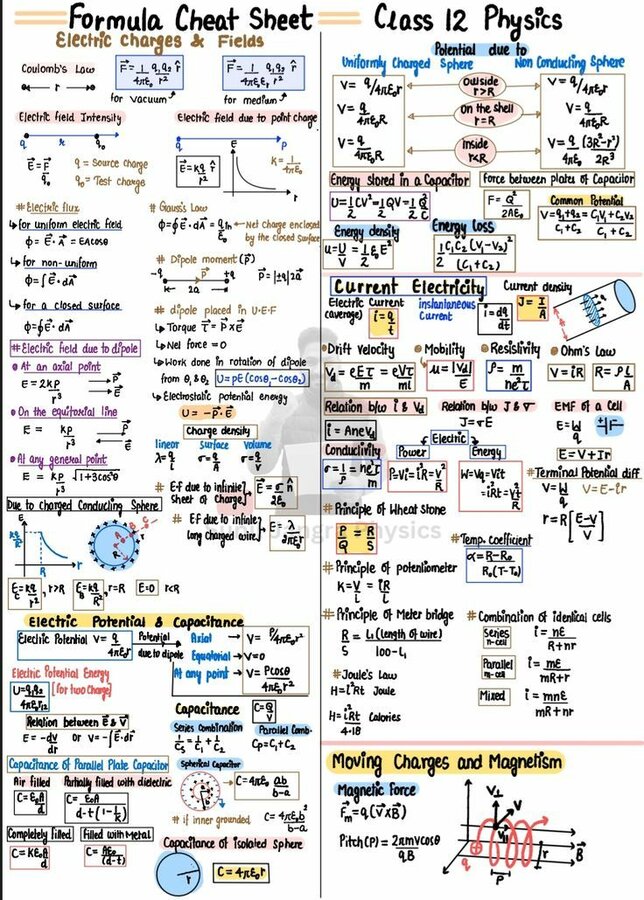 Formula Cheat Sheet
Class 12 Physics
Electric Charges & Fields
Coulomb's Law
r
F⃗ = 1/4πε₀ q₁q₂/r² r̂
for vacuum
F⃗ = 1/4πε₀εᵣ q₁q₂/r² r̂
for medium
Electric field Intensity
q r q₀
E⃗ = F⃗/q₀
q = Source charge
q₀ = Test charge
Electric field due to point charge
q P
E⃗ = kq/r² r̂
E
r
K = 1/4πε₀
# Electric flux
↳ for uniform electric field
ϕ = E⃗·A⃗ = EAcosθ
↳ for non-uniform
ϕ = ∫E⃗·dA⃗
↳ for a closed surface
ϕ = ∮E⃗·dA⃗
# Gauss's Law
ϕ = ∮E⃗·dA⃗ = qin/ε₀
Net charge enclosed
by the closed surface
# Dipole moment (P⃗)
-q P⃗ q
2a
P⃗ = |±q|2a⃗
# dipole placed in U·E·F
↳ Torque τ⃗ = P⃗×E⃗
↳ Net force = 0
↳ Work done in rotation of dipole
from θ₁ & θ₂ U = pE(cosθ₁-cosθ₂)
↳ Electrostatic potential energy
U = -P⃗·E⃗
# Electric field due to dipole
At an axial point
E = 2kp/r³
On the equitorial line
E = kp/r³
At any general point
E = kp/r³ √1+3cos²θ
Charge density
linear surface volume
λ = q/L σ = q/A σ = q/V
# Ef due to infinite
Sheet of Charge
E⃗ = σ/2ε₀ n̂
# Ef due to infinite
long charged wire
E⃗ = λ/2πε₀r
Due to charged Conducting Sphere
E
kq/R²
R r
A B C
R
E = kq/r², r>R
E = kq/R², r=R
E=0 r<R
Electric Potential & Capacitance
Electric Potential V = q/4πε₀r
Potential
due to dipole
Axial → V = P/4πε₀r²
Equatorial → V=0
At any point → V = Pcosθ/4πε₀r²
Electric Potential Energy
U = q₁q₂/4πε₀r₁₂
[for two charge]
Relation between E⃗ & V⃗
E = -dV/dr or V = -∫E⃗·dr⃗
Capacitance
C = Q/V
Series Combination
1/Cs = 1/C₁ + 1/C₂
Parallel Comb-
Cp = C₁+C₂
Capacitance of Parallel Plate Capacitor
Air filled
C = ε₀A/d
Partially filled with dielectric
C = ε₀A/d-t(1-1/k)
Completely filled
C = Kε₀A/d
Filled with Metal
C = Aε₀/(d-t)
Spherical Capacitor
C = 4πε₀ ab/b-a
# if inner grounded C = 4πε₀b²/b-a
Capacitance of isolated sphere
r
C = 4πε₀r
Potential due to
Uniformly Charged Sphere
Non Conducting Sphere
V = q/4πε₀r
outside
r>R
V = q/4πε₀r
V = q/4πε₀R
on the shell
r=R
V = q/4πε₀R
V = q/4πε₀R
inside
r<R
V = q/4πε₀ (3R²-r²)/2R³
Energy stored in a Capacitor
U = 1/2 CV² = 1/2 QV = 1/2 Q²/C
force between plates of Capacitor
F = Q²/2Aε₀
Common Potential
V = q₁+q₂/C₁+C₂ = C₁V₁+C₂V₂/C₁+C₂
Energy density
u = U/V = 1/2 ε₀E²
Energy loss
1/2 C₁C₂(V₁-V₂)²/(C₁+C₂)
Current Electricity
Electric Current
(average) i = q/t
instantaneous
Current i = dq/dt
Current density
J = I/A
Drift Velocity
Vd = eEτ/m = eVτ/ml
Mobility
μ = |Vd|/E
Resistivity
ρ = m/ne²τ
Ohm's Law
V = iR R = ρL/A
Relation b/w i & Vd
i = AneVd
Relation b/w J & σ
J = σE
EMF of a Cell
E = W/q
E = V + Ir
Conductivity
σ = 1/ρ = ne²τ/m
Electric
Power
P = Vi = i²R = V²/R
Energy
W = Vq = Vit
= i²Rt = V²t/R
# Terminal Potential diff
V = W/q V = E-ir
r = R[E-V/V]
# Principle of Wheat stone
P/Q = R/S
Physics
# Temp. Coefficient
α = R-R₀/R₀(T-T₀)
# Principle of potentiometer
K = V/L = iR/L
# Principle of Meter bridge
R/S = L₁(length of wire)/100-L₁
# Combination of identical cells
Series
n-cell
i = nE/R+nr
Parallel
m-cell
i = mE/mR+r
Mixed i = mnE/mR+nr
# Joule's Law
H = i²Rt Joule
H = i²Rt/4.18 Calories
Moving Charges and Magnetism
Magnetic force
F⃗m = q(V⃗×B⃗)
Pitch(P) = 2πmvcosθ/qB
V⊥
V
V∥
q
P
r
B⃗